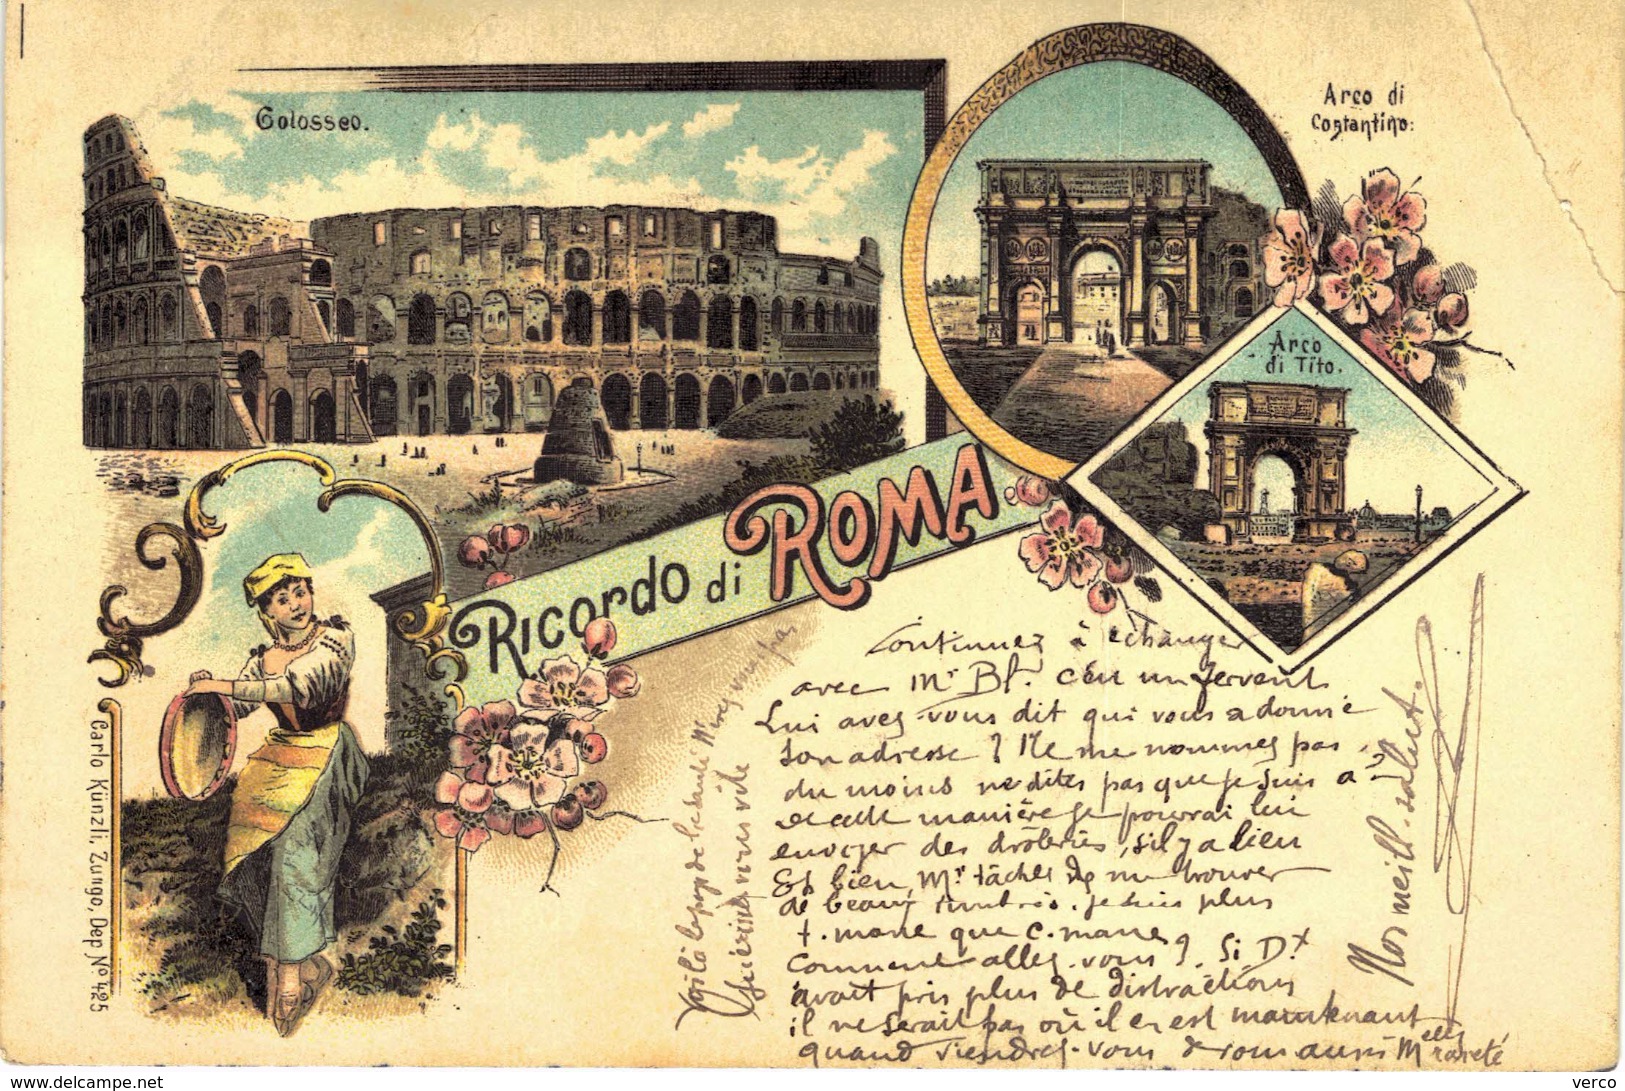 Colosseo.
Arco di
Costantino:
Arco
di Tito.
Ricordo di ROMA.
Carlo Kunzli, Zurigo, Dep No 425
Continuez à échanger
avec Mr Bl. c'en un fervent
Lui avez-vous dit qui vous a donné
son adresse? Ne me nommez pas,
du moins ne dites pas que je suis à
de cette manière je pourrai lui
envoyer des drôleries, s'il y a lieu
Eh bien, Mr tâchez de me trouver
de beaux timbres. je suis plus
t. mane que c. mane
Comment allez-vous? Si Dx
avait pris plus de distractions
il ne serait pas où il en est maintenant
quand viendrez-vous de vous aussi Melle
Voilà le pays de
vous vite
Nos meill. salut.
www.delcampe.net
verco